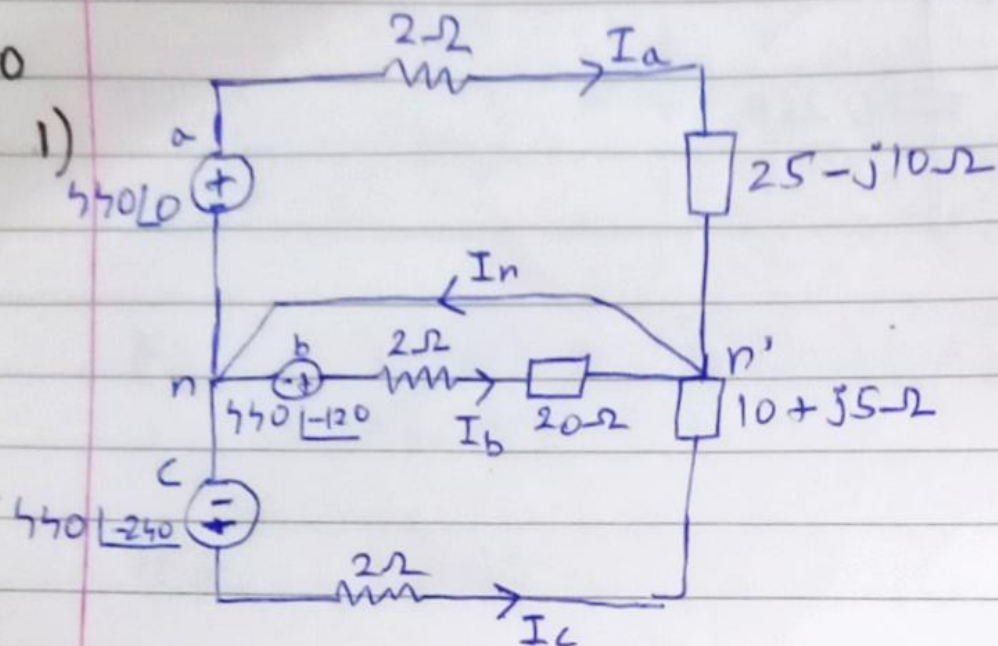 0
2Ω
Ia
1)
a
+
440∠0
25-j10Ω
In
b
2Ω
n'
n
- +
440∠-120
Ib
20Ω
10+j5Ω
c
-
+
440∠-240
2Ω
Ic